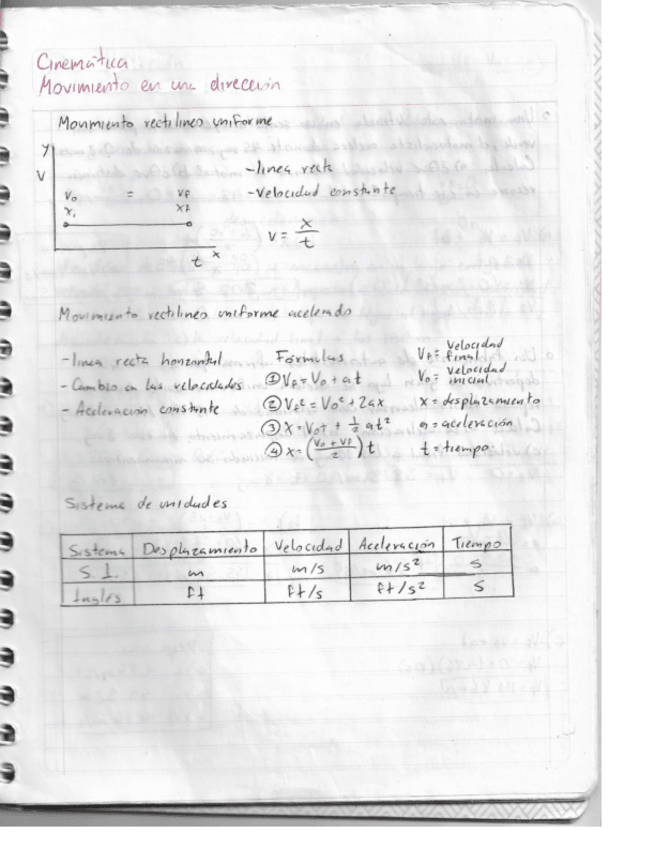 Cinemática
Movimiento en una dirección
Movimiento rectilineo uniforme
y
V
Vo = Vf
Xi Xf
t x
-linea recta
-Velocidad constante
V = x/t
Movimiento rectilineo uniforme acelerado
-linea recta horizontal
- Cambio en las velocidades
- Aceleración constante
Fórmulas
① Vf = Vo + at
② Vf² = Vo² + 2ax
③ X = Vot + ½ at²
④ X = (Vo + Vf / 2) t
Vf = Velocidad final
Vo = Velocidad inicial
x = desplazamiento
a = aceleración
t = tiempo
Sistema de unidades
Sistema Desplazamiento Velocidad Aceleración Tiempo
S.I. m m/s m/s² s
Ingles ft ft/s ft/s² s